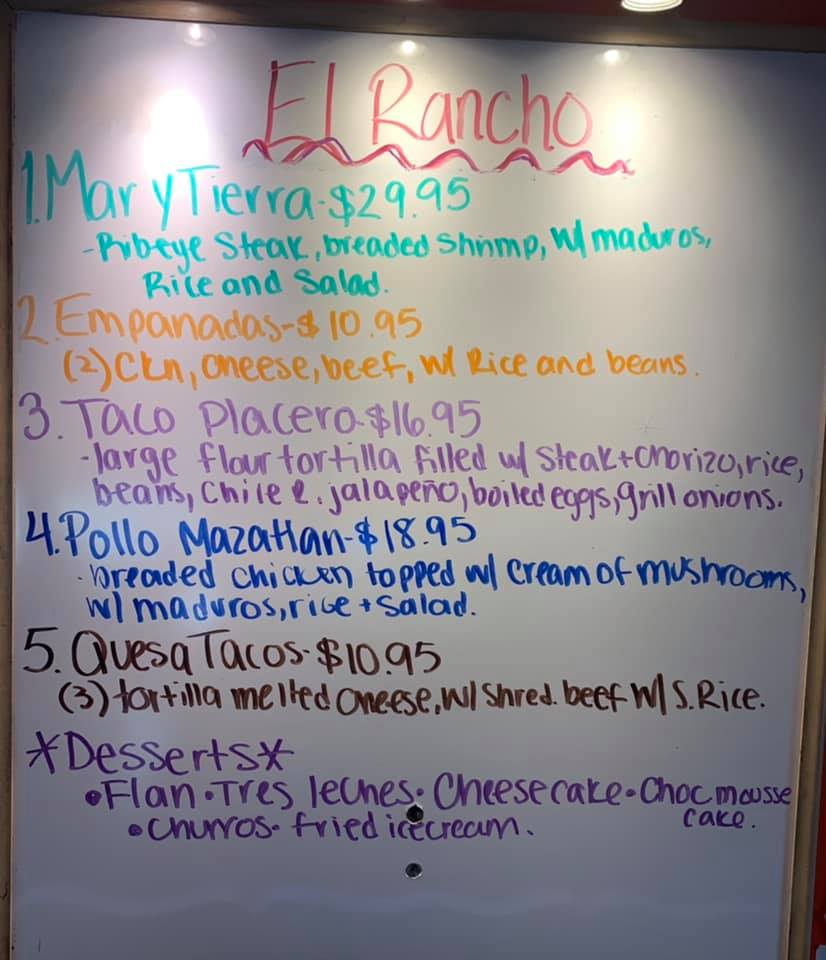 El Rancho
1. Mar y Tierra-$29.95
-Ribeye Steak, breaded Shrimp, w/ maduros,
Rice and Salad.
2. Empanadas-$10.95
(2) Ckn, cheese, beef, w/ Rice and beans.
3. Taco Placero-$16.95
-large flour tortilla filled w/ Steak+chorizo, rice,
beans, Chile e. jalapeño, boiled eggs, grill onions.
4. Pollo Mazatlan-$18.95
-breaded chicken topped w/ cream of mushrooms,
w/ maduros, rice + Salad.
5. Quesa Tacos-$10.95
(3) tortilla melted cheese, w/ shred. beef w/ S. Rice.
*Desserts*
•Flan •Tres leches• Cheese cake •Choc mousse
cake.
•Churros• fried icecream.